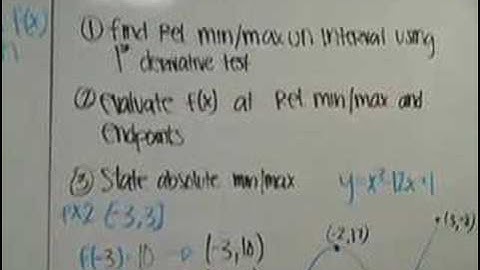 f(x)
① find Rel min/max on interval using
1st derivative test
② evaluate f(x) at Rel min/max and
endpoints
③ State absolute min/max
y=x³-12x+1
EX2 [-3,3]
(-2,17)
f(-3)=10 → (-3,10)